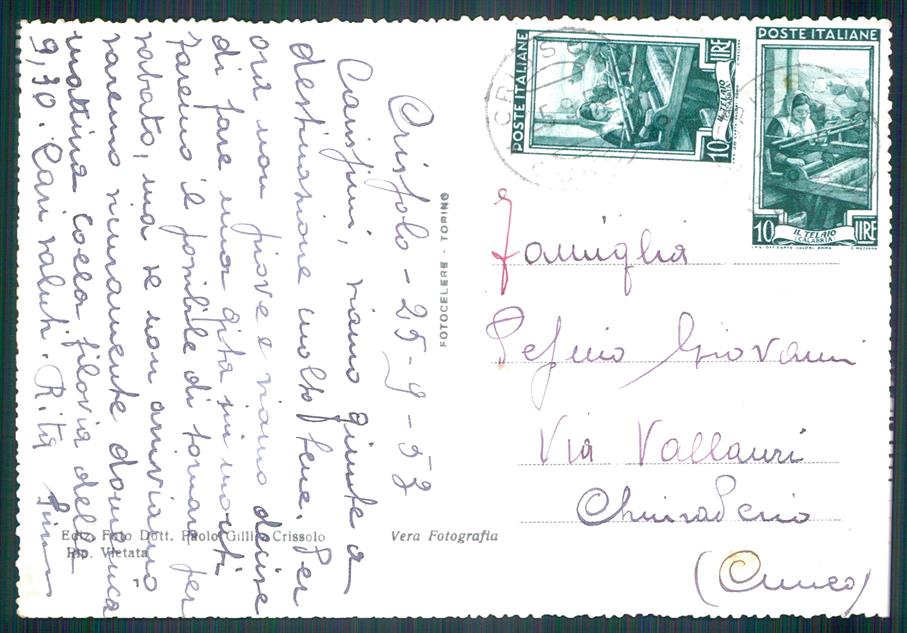 Crissolo - 25-9-52
Carissimi, siamo giunte a
destinazione molto bene. Per
ora non piove e siamo decise
di fare una gita sui monti
faremo il possibile di tornare per
sabato, ma se non arriviamo
saremo sicuramente domenica
mattina colla filovia delle
9,30. Cari saluti. Rita
FOTOCELERE - TORINO
Ediz. Foto Dott. Paolo Gilli - Crissolo
Rip. Vietata
Vera Fotografia
POSTE ITALIANE
10 LIRE
IL TELAIO
(CALABRIA)
POSTE ITALIANE
10 LIRE
IL TELAIO
(CALABRIA)
Famiglia
Giovanni
Via Vallauri
Chiusa Pesio
(Cuneo)